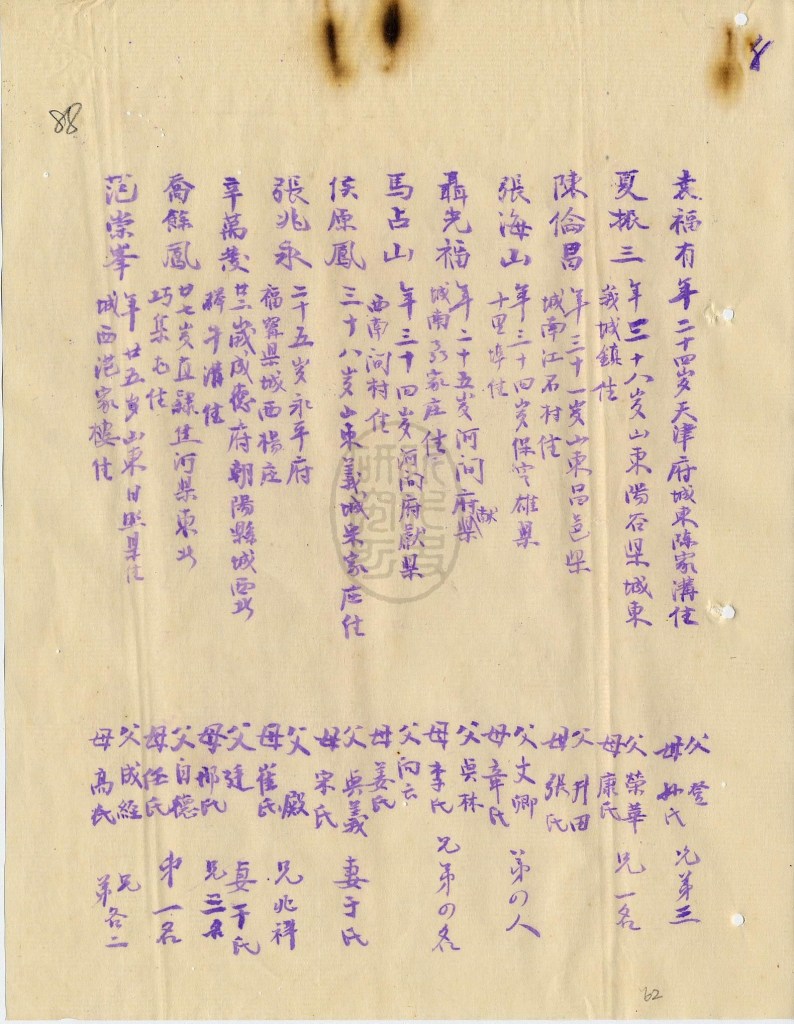 8
88
袁福有 年二十四岁天津府城東陈家溝住
父 登
母孙氏 兄弟三
夏振三 年三十八岁山東陽谷県城東
義城鎮住
父榮華
母康氏 兄一名
陳倫昌 年三十一岁山東昌邑県
城南江石村住
父升田
母張氏
張海山 年三十四岁保定雄県
十里埠住
父文卿
母章氏 弟の人
聶光福 年二十五岁河间府献県
城南 家庄住
父奐林
母李氏 兄弟の名
馬占山 年三十四岁河间府獻県
西南问村住
父向云
母姜氏
侯原鳳 三十八岁山東義城宋家庄住
父興義
母宋氏 妻于氏
張兆永 二十五岁永平府
福寧県城西楊庄
父 殿
母崔氏 兄兆祥
辛萬茂 廿二歲成德府朝陽縣城西北
犁牛溝住
父廷
母邢氏 妻于氏
兄三名
喬餘鳳 廿七岁直隷進河県東北
巧集屯住
父自德
母任氏 弟一名
范崇峯 年廿五岁山東日照県住
城西范家樓住
父成經
母高氏 兄弟各二
62